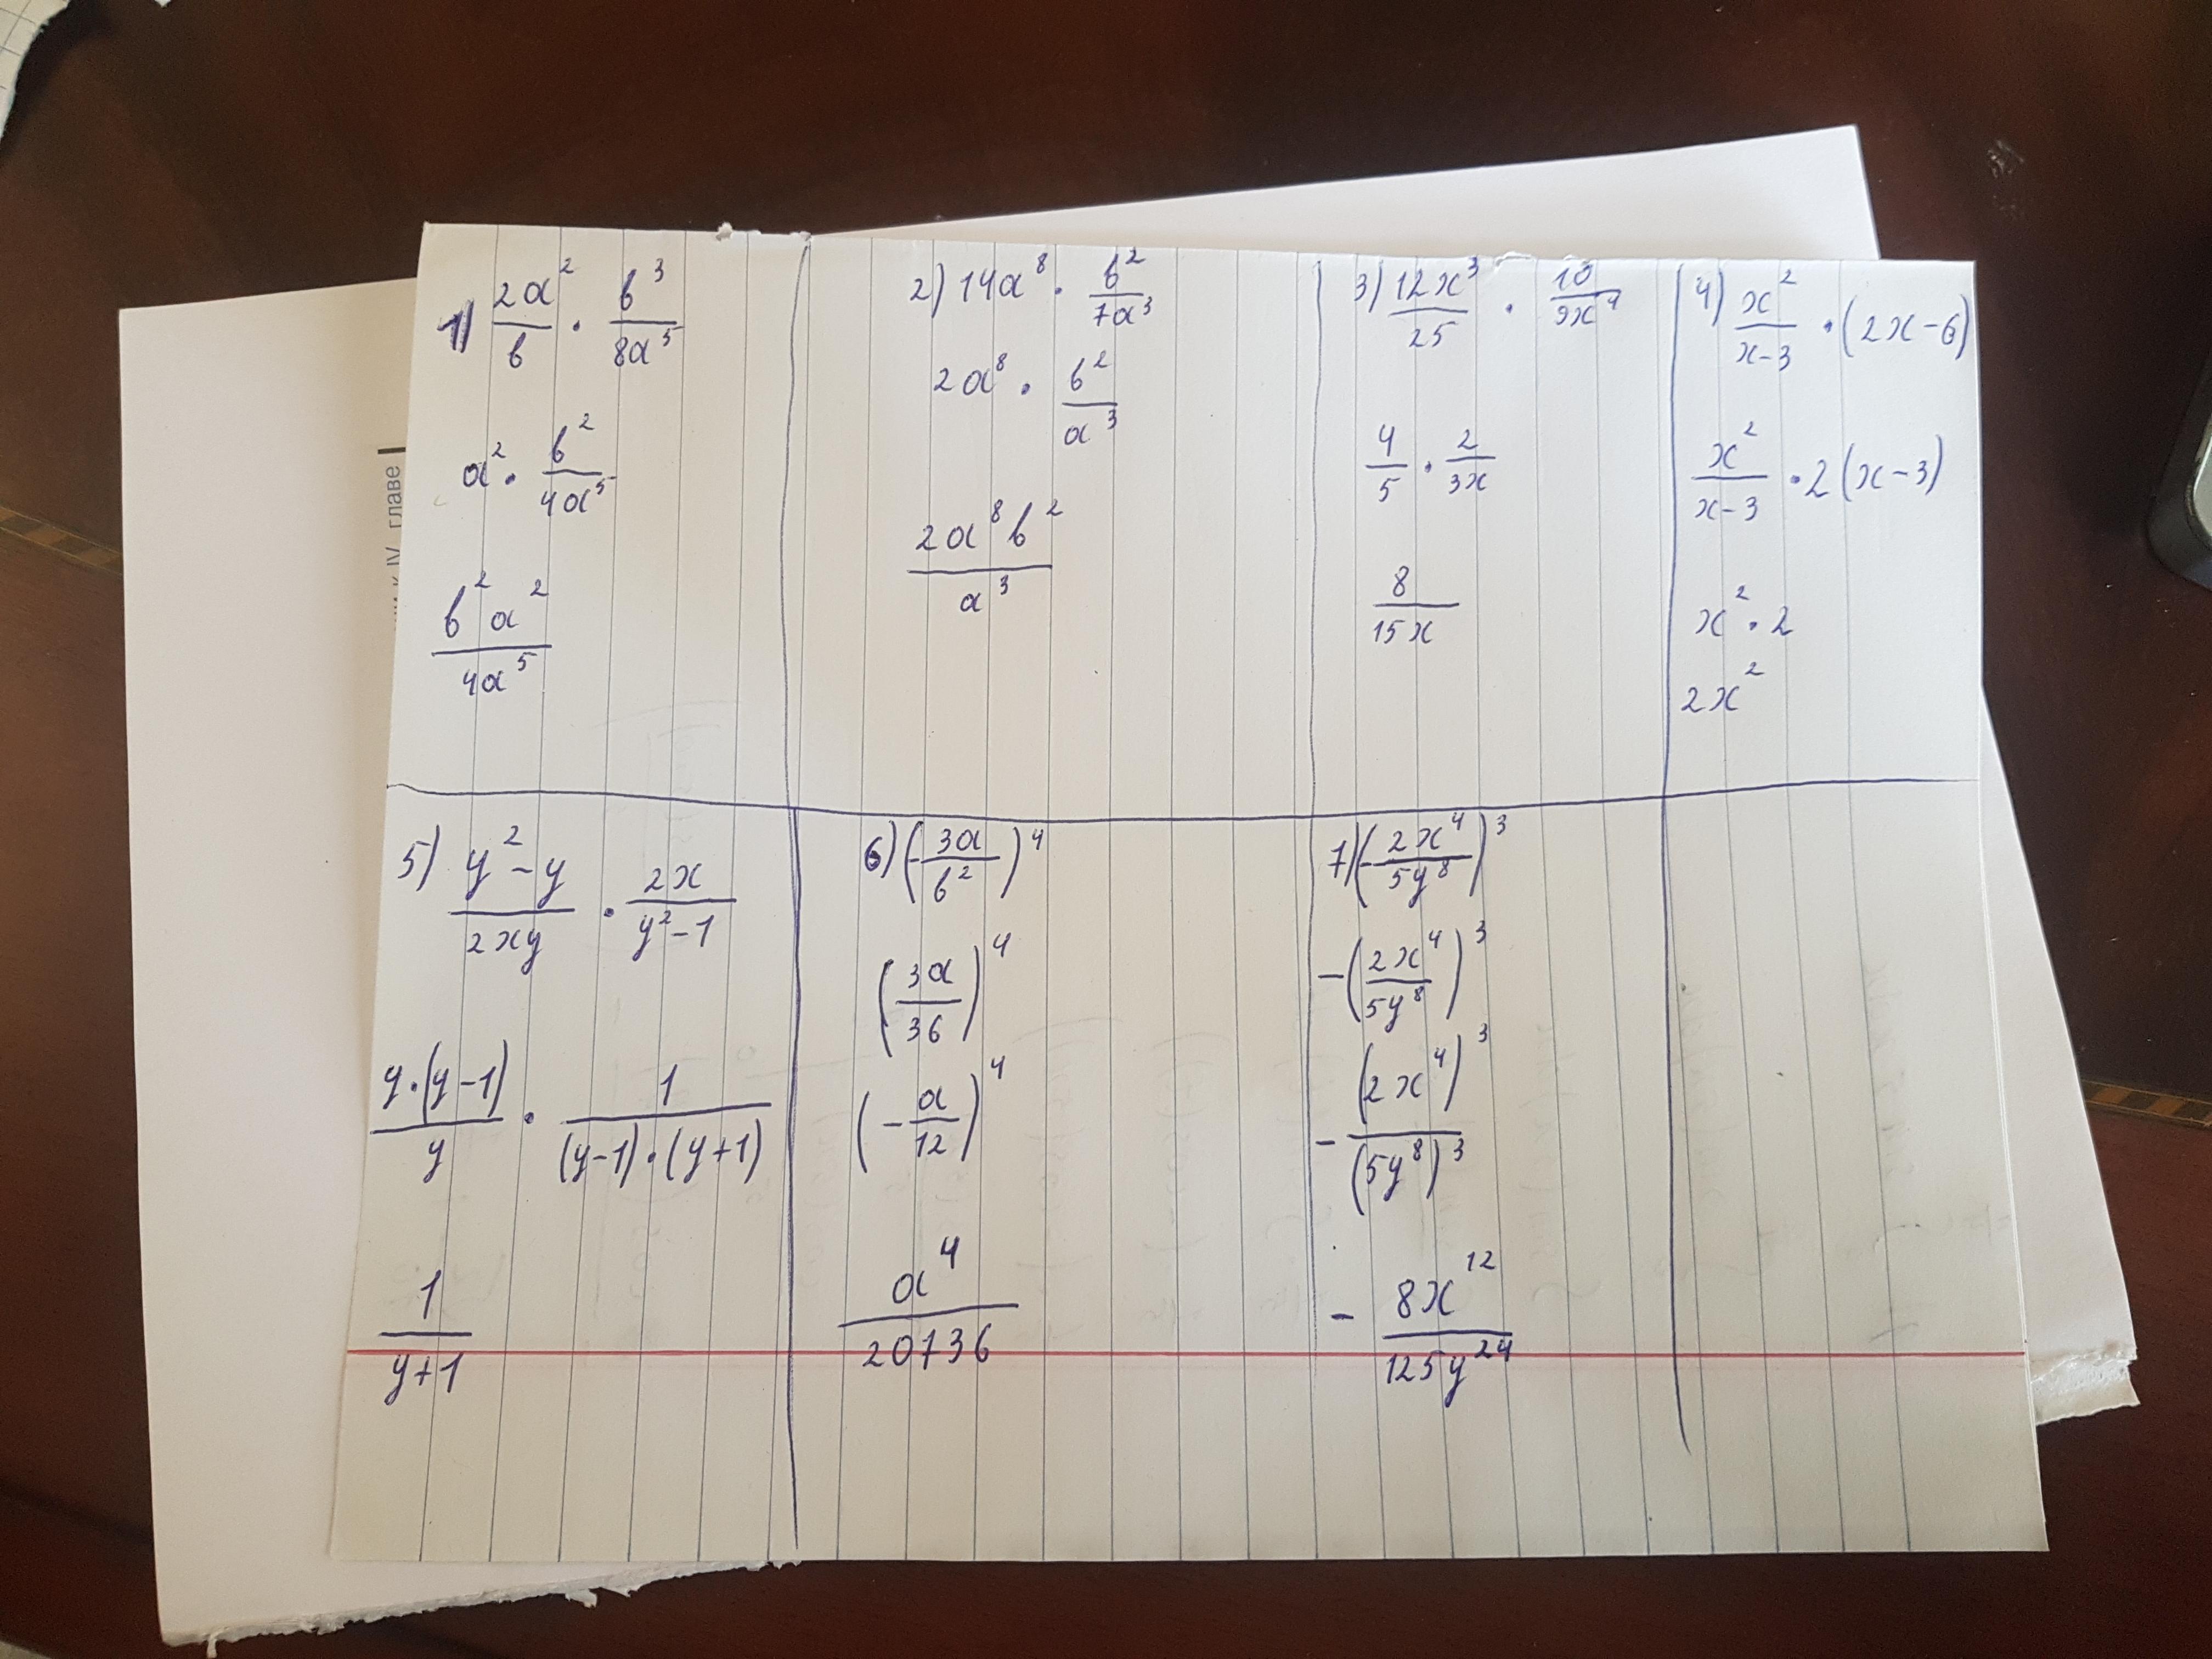 1) 2a²/b · b³/8a⁵
a² · b²/4a⁵
b²a²/4a⁵
2) 14a⁸ · b²/7a³
2a⁸ · b²/a³
2a⁸b²/a³
3) 12x³/25 · 10/9x⁴
4/5 · 2/3x
8/15x
4) x²/x-3 · (2x-6)
x²/x-3 · 2(x-3)
x² · 2
2x²
5) y²-y/2xy · 2x/y²-1
y·(y-1)/y · 1/(y-1)·(y+1)
1/y+1
6) (-3a/b²)⁴
(3a/36)⁴
(-a/12)⁴
a⁴/20736
7) (-2x⁴/5y⁸)³
-(2x⁴/5y⁸)³
-(2x⁴)³/(5y⁸)³
-8x¹²/125y²⁴
к IV главе